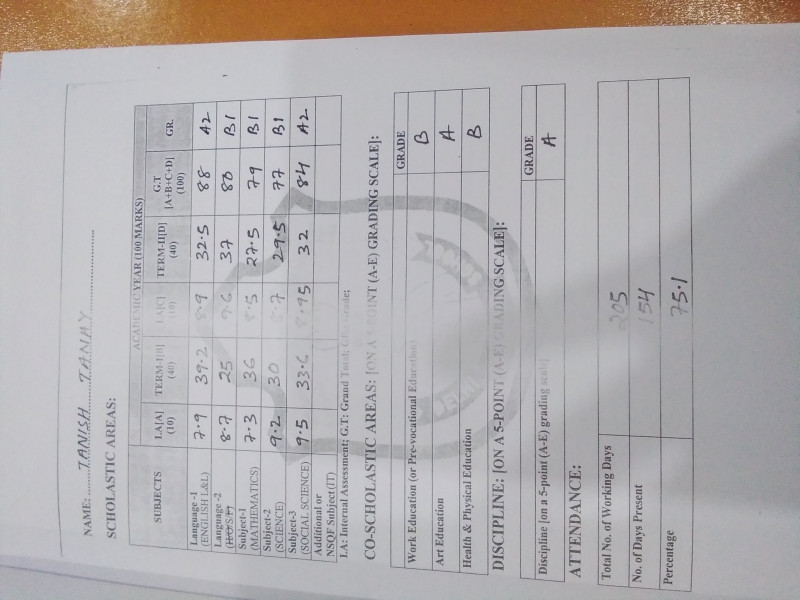 NAME: ......... TANISH TANAY .........
SCHOLASTIC AREAS:
ACADEMIC YEAR (100 MARKS)
SUBJECTS I.A[A] (10) TERM-I[B] (40) I.A[C] (10) TERM-II[D] (40) G.T [A+B+C+D] (100) GR.
Language -1 (ENGLISH L&L) 7.9 39.2 8.9 32.5 88 A2
Language -2 8.7 25 9.6 37 80 B1
Subject-1 (MATHEMATICS) 7.3 36 8.5 27.5 79 B1
Subject-2 (SCIENCE) 9.2 30 8.7 29.5 77 B1
Subject-3 (SOCIAL SCIENCE) 9.5 33.6 8.95 32 84 A2
Additional or NSQF Subject(IT)
I.A: Internal Assessment; G.T: Grand Total; GR: Grade;
CO-SCHOLASTIC AREAS: [ON A 5-POINT (A-E) GRADING SCALE]:
GRADE
Work Education (or Pre-vocational Education) B
Art Education A
Health & Physical Education B
DISCIPLINE: [ON A 5-POINT (A-E) GRADING SCALE]:
GRADE
Discipline [on a 5-point (A-E) grading scale] A
ATTENDANCE:
Total No. of Working Days 205
No. of Days Present 154
Percentage 75.1